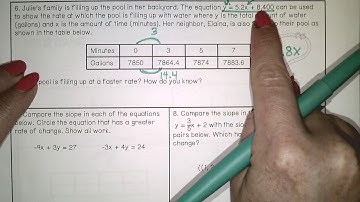 6. Julie's family is filling up the pool in her backyard. The equation y = 5.2x + 8,400 can be used
to show the rate at which the pool is filling up with water where y is the total amount of water
(gallons) and x is the amount of time (minutes). Her neighbor, Elaina, is also their pool as
shown in the table below.
3
Minutes 0 3 5 7
Gallons 7850 7864.4 7874 7883.6
8x
14.4
pool is filling up at a faster rate? How do you know?
Compare the slope in each of the equations
below. Circle the equation that has a greater
rate of change. Show all work.
-9x + 3y = 27 -3x + 4y = 24
8. Compare the slope in
y = 3/5 x + 2 with the slo
pairs below. Which ha
change?